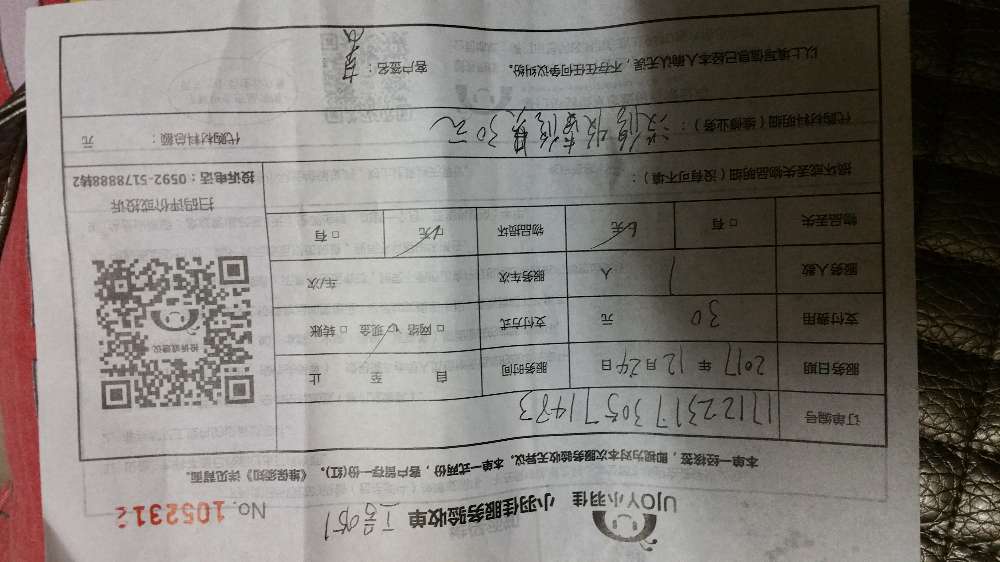 UJOY小羽佳 小羽佳服务验收单 工号051 No. 105231
本单一经核签，即视为对本次服务验收无异议。本单一式两份，客户留存一份(红)。《维保须知》详见背面。
订单编号 1712231730571483
服务日期 2017 年 12 月 24 日 服务时间 自 至 止
支付费用 30 元 支付方式 □ 网络 ☑ 现金 □ 转账
服务人数 1 人 服务车次 车/次
物品丢失 □ 有 ☑ 无 物品损坏 ☑ 无 □ 有
投诉或建议
扫码评价或投诉
投诉电话：0592-5178888转2
损坏或丢失物品明细（没有可不填）：
代购材料明细（维修业务）： 30元
代购材料总额： 元
以上填写信息已经本人确认无误，不存在任何争议纠纷。 客户签名：